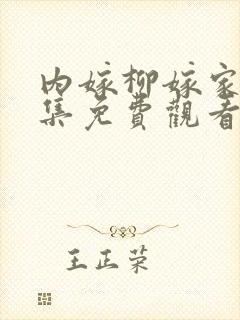 内嫁柳嫁家
集免費觀看
王正荣